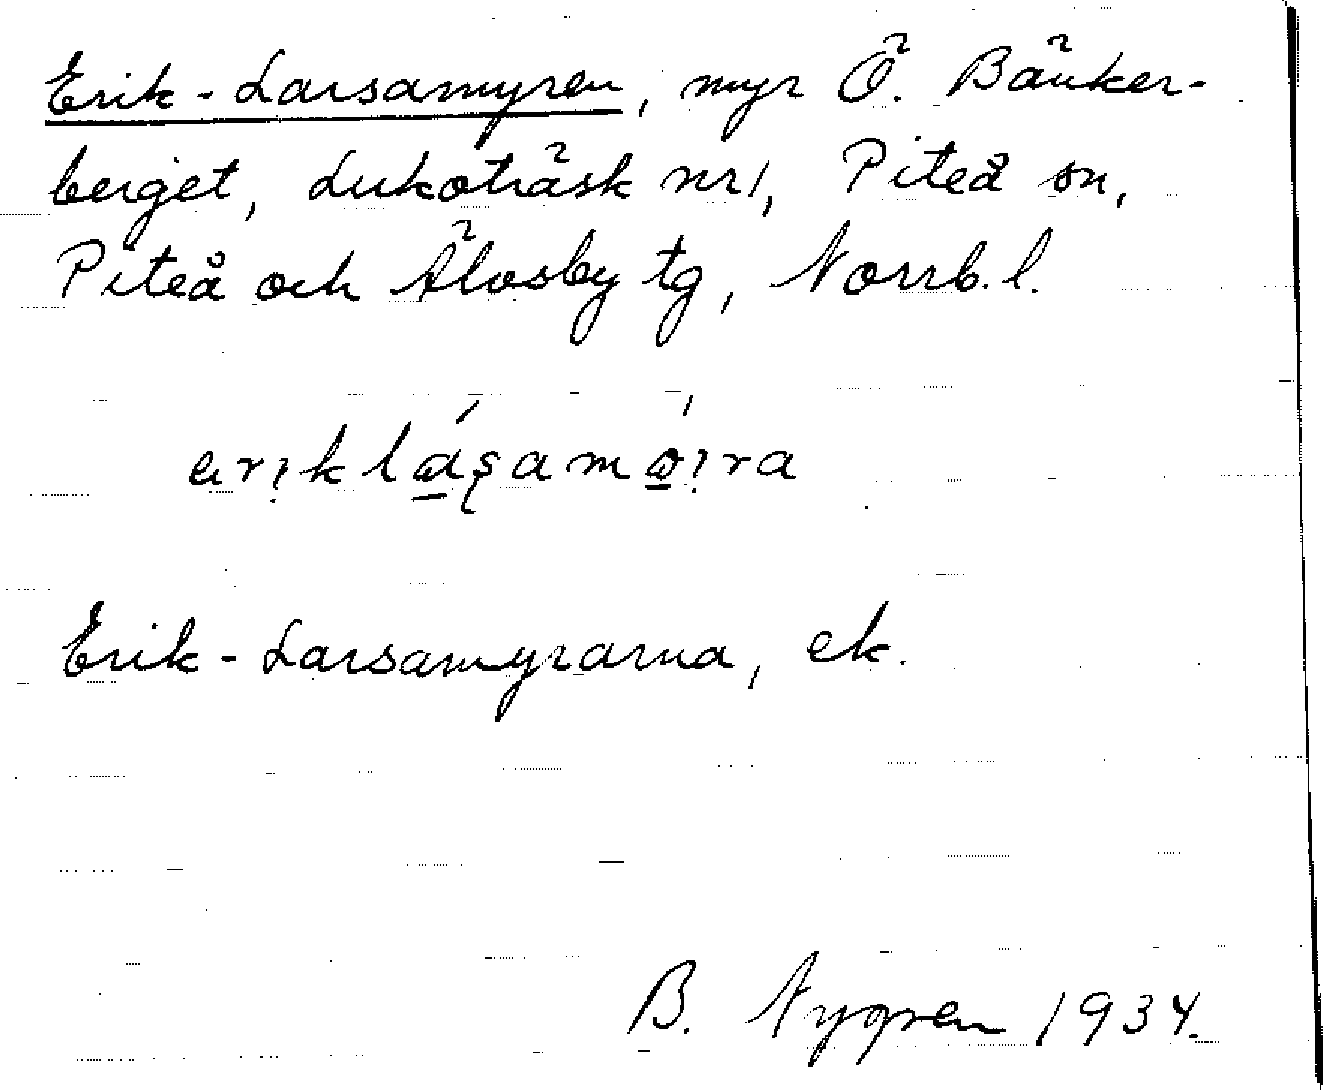 Erik-Larsamyren, myr Ö. Bänker-
berget, Lukoträsk nr 1, Piteå sn,
Piteå och Älvsby tg, Norrb. l.
Erik-Larsamyrarna, ek.
B. Nygren 1934.